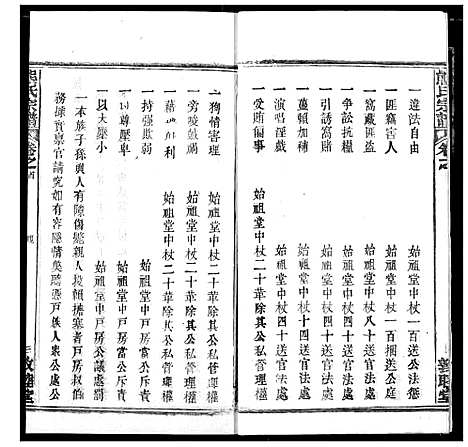 熊氏宗譜 卷之首
一違法自由 始祖堂中杖一百送公法懲
一匪竊害人 始祖堂中杖一百捆送官府
一窩藏匪盜 始祖堂中杖八十送官法處
一爭訟抗糧 始祖堂中杖四十送官法處
一引誘窩賭 始祖堂中杖四十送官法處
一演唱淫戲 始祖堂中杖四十送官法處
一受賄偏事 始祖堂中杖二十革除其公私管理權
敦睦堂
一狥情害理 始祖堂中杖二十革除其公私管理權
一旁唆竊議 始祖堂中杖二十革除其公私管理權
一藉事私利 始祖堂中杖二十革除其公私管理權
一持強欺弱 始祖堂中戶房當公斥責
一以卑壓尊 始祖堂中戶房當公斥責
一以大壓小 始祖堂中戶房公議處罰
一本族子孫與人有隙傷斃親人挨顏擋塞者戶房叔伯
務採實稟官請究如有容隱情獘聽憑戶族人衆公處公
熊氏宗譜 卷之首
敦睦堂